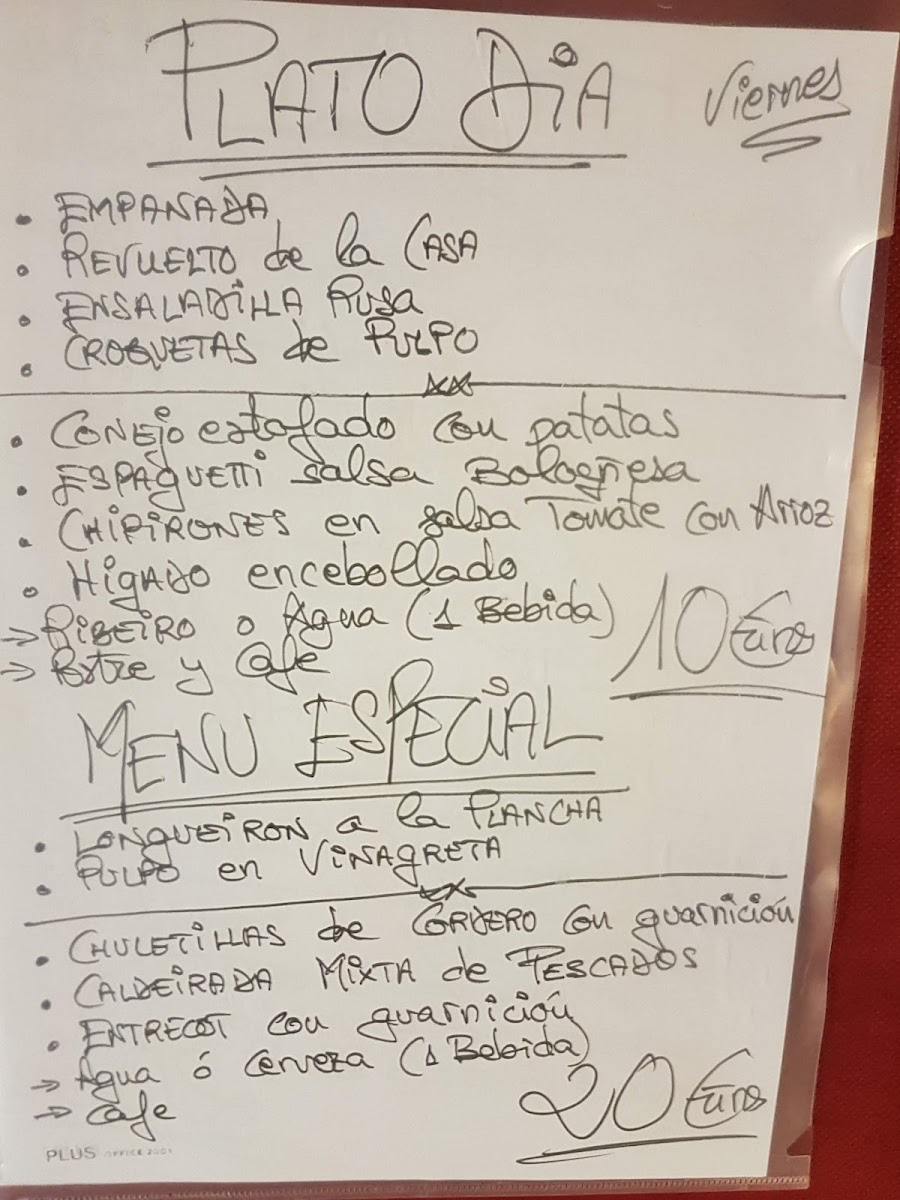 PLATO DiA
Viernes
• EMPANADA
• REVUELTO de la CASA
• ENSALADILLA RUSA
• CROQUETAS de PULPO
xx
• CONEJO estofado con patatas
• ESPAGUETTI salsa Bologñesa
• CHIPIRONES en salsa Tomate con Arroz
• HIGADO encebollado
→ RIBEIRO o Agua (1 Bebida)
→ Postre y Cafe
10 Euros
MENU ESPECIAL
• LONGUEIRON a la PLANCHA
• PULPO en VINAGRETA
xx
• CHULETILLAS de CORDERO con guarnición
• CALDEIRADA MIXTA de PESCADOS
• ENTRECOT con guarnición
→ Agua ó Cerveza (1 Bebida)
→ Cafe
20 Euros
PLUS OFFICE 2001